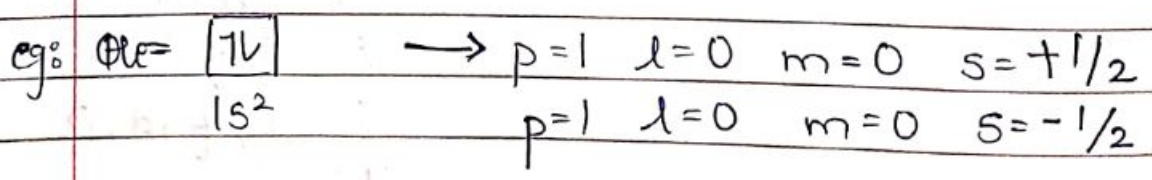 eg: He= 1↿⇂ → p=1 l=0 m=0 s=+1/2
1s² p=1 l=0 m=0 s=-1/2